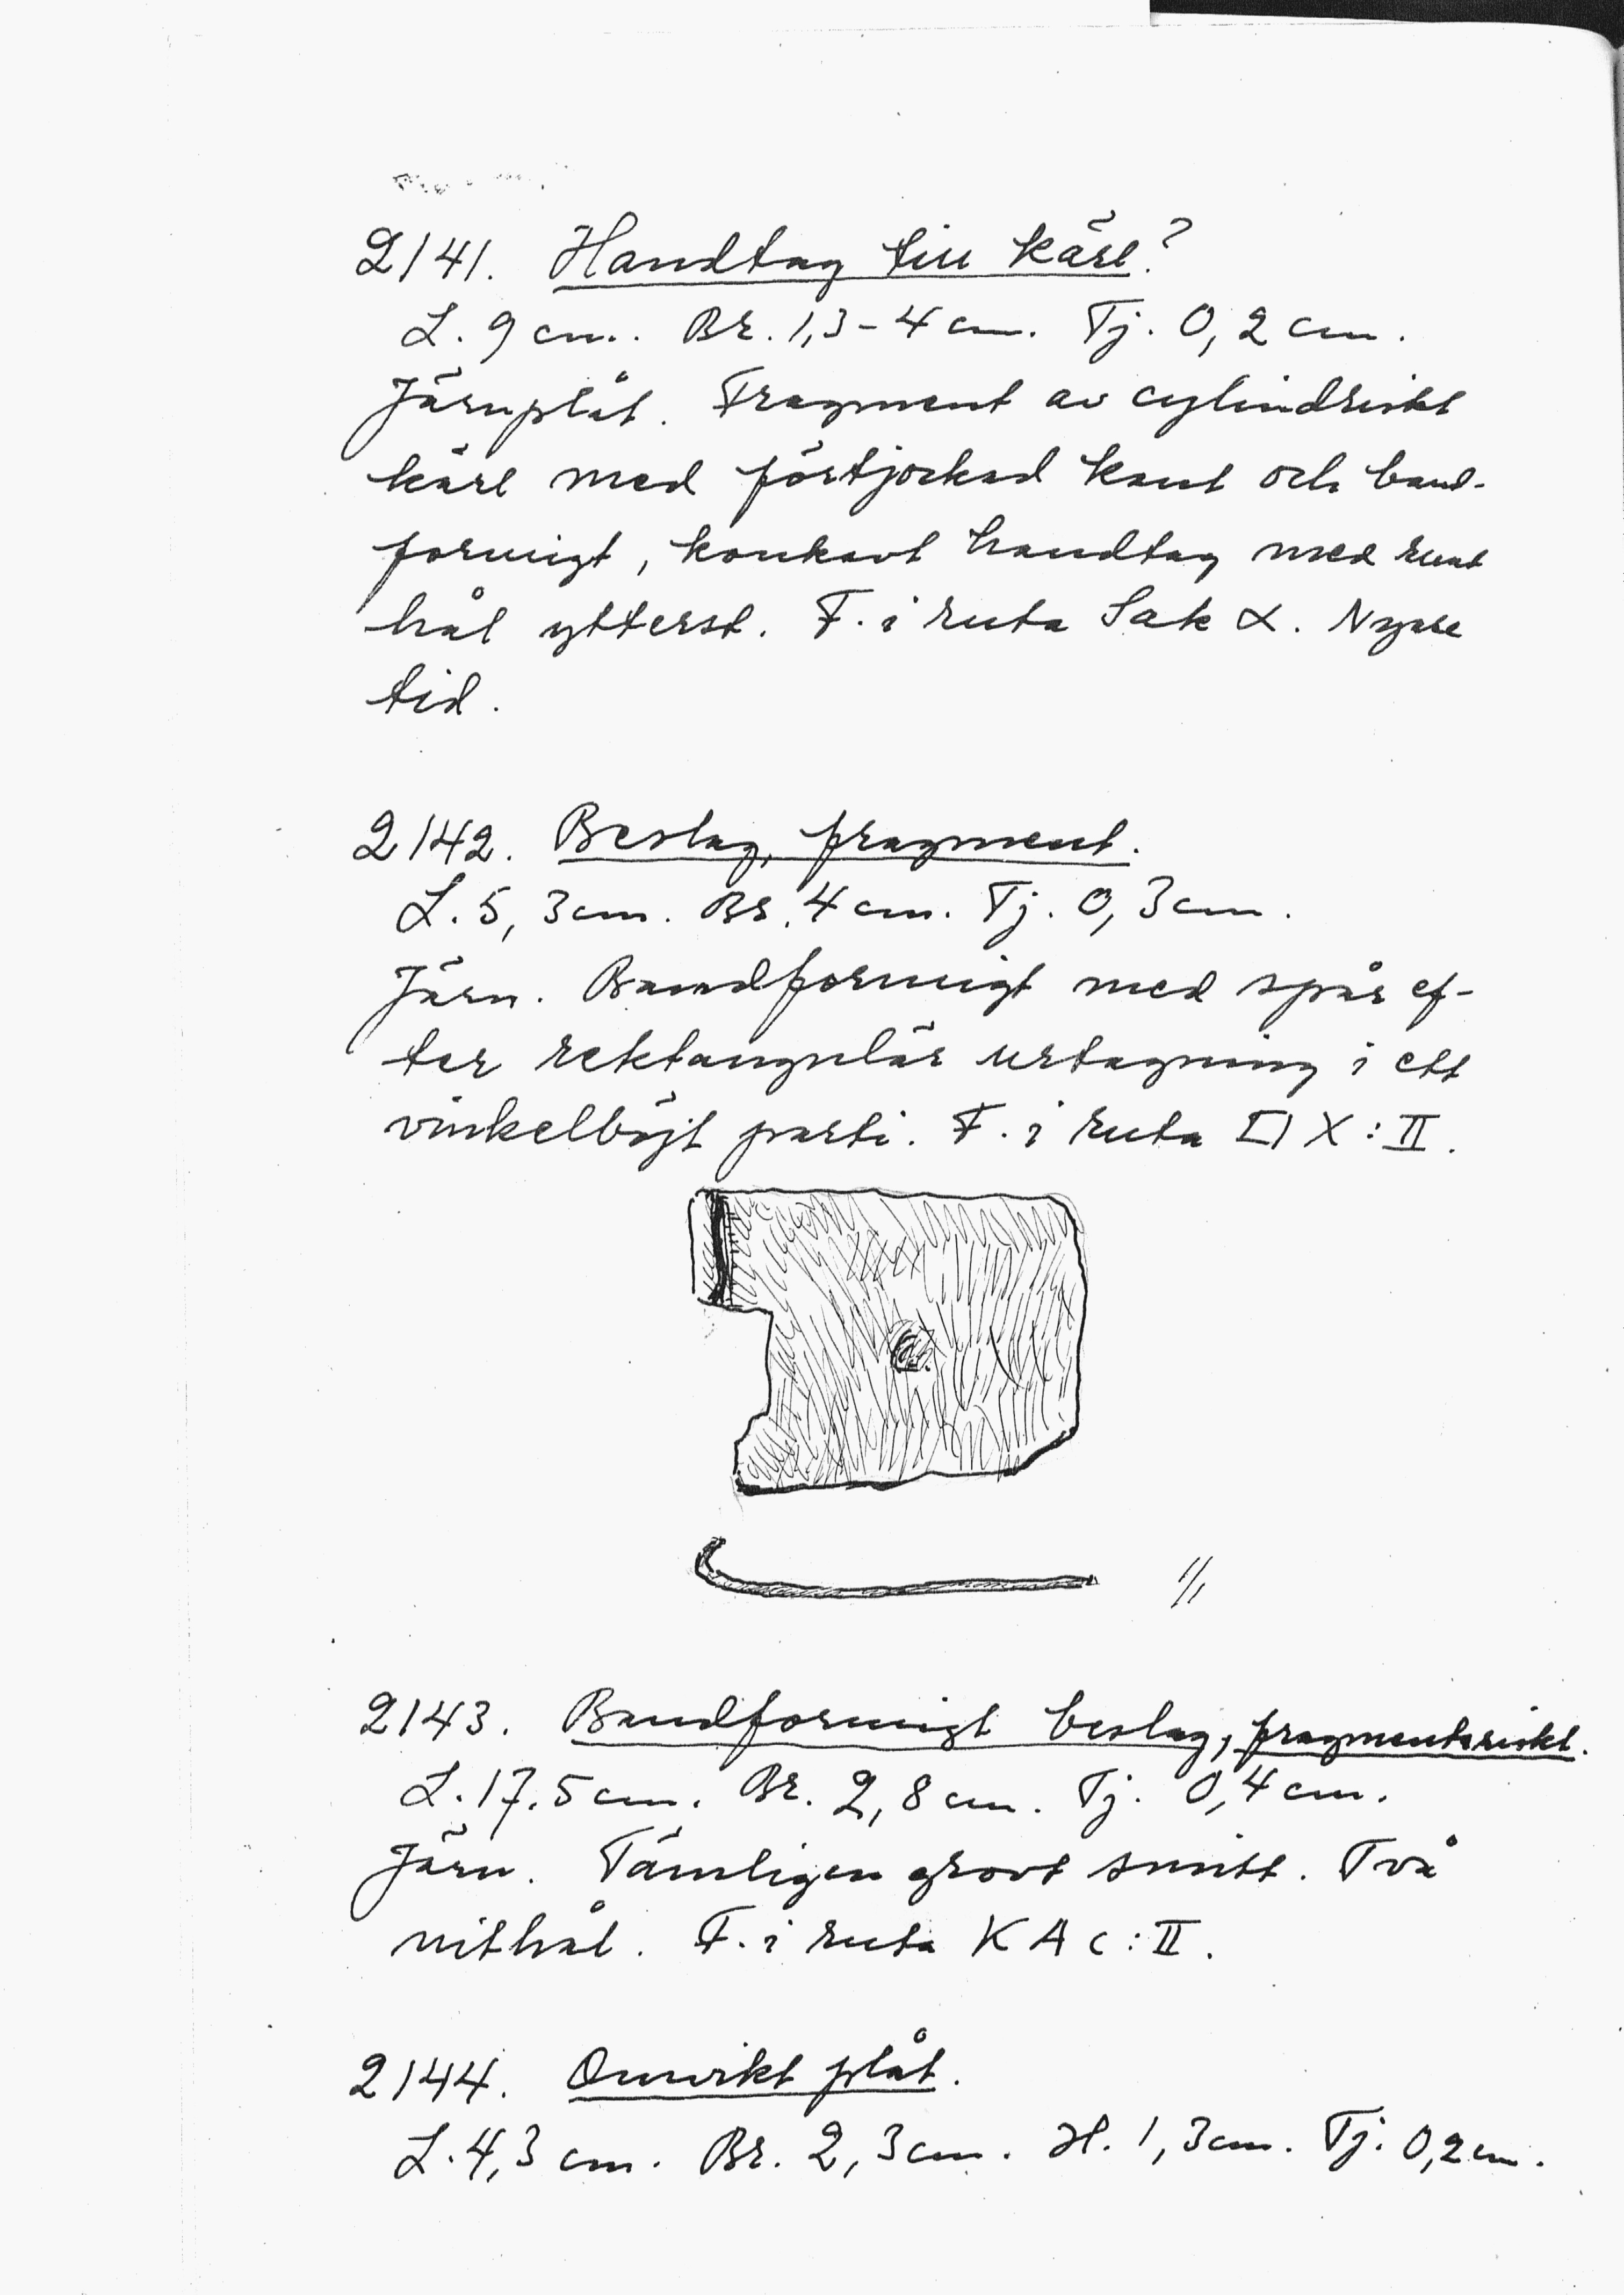 2141. Handtag till kärl?
L. 9 cm. Br. 1,3-4 cm. Tj. 0,2 cm.
Järnplåt. Fragment av cylindriskt
kärl med förtjockad kant och band-
formigt, konkavt handtag med runt
hål ytterst. F. i ruta Sak α. Nyare
tid.
2142. Beslag, fragment.
L. 5,3 cm. Br. 4 cm. Tj. 0,3 cm.
Järn. Bandformigt med spår ef-
ter rektangulär urtagning i ett
vinkelböjt parti. F. i ruta X:II.
1/1
2143. Bandformigt beslag, fragmentariskt.
L. 17,5 cm. Br. 2,8 cm. Tj. 0,4 cm.
Järn. Tämligen grovt smitt. Två
nithål. F. i ruta K A c:II.
2144. Omvikt plåt.
L. 4,3 cm. Br. 2,3 cm. H. 1,3 cm. Tj. 0,2 cm.